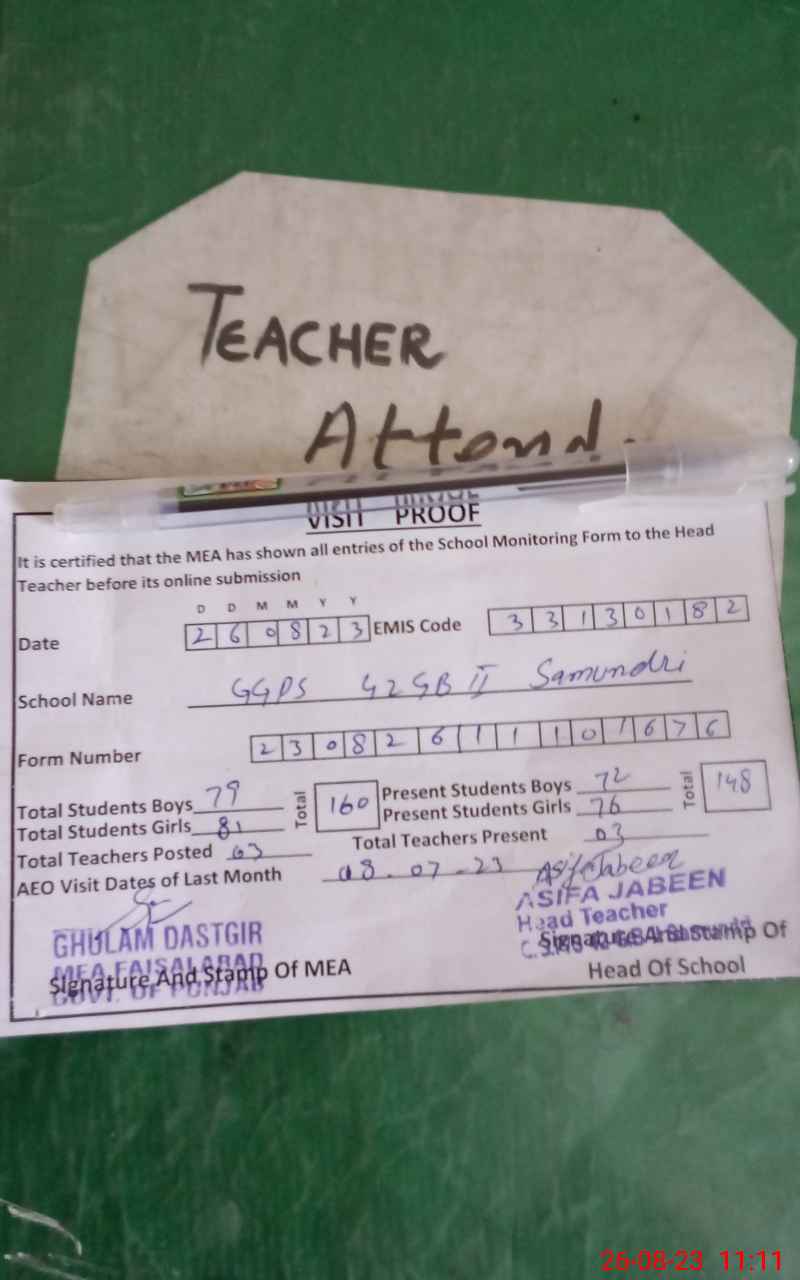 TEACHER
Attend.
VISIT PROOF
It is certified that the MEA has shown all entries of the School Monitoring Form to the Head
Teacher before its online submission
D D M M Y Y
Date 2 6 0 8 2 3 EMIS Code 3 3 1 3 0 1 8 2
School Name GGPS 42 GB II Samundri
Form Number 2 3 0 8 2 6 1 1 1 0 1 6 7 6
Total Students Boys 79 Total 160 Present Students Boys 72 Total 148
Total Students Girls 81 Present Students Girls 76
Total Teachers Posted 03 Total Teachers Present 03
AEO Visit Dates of Last Month 08.07.23 Asifa Jabeen
GHULAM DASTGIR ASIFA JABEEN
MEA FAISALABAD Head Teacher
GOVT. OF PUNJAB
Signature And Stamp Of MEA Signature And Stamp Of
Head Of School
26-08-23 11:11